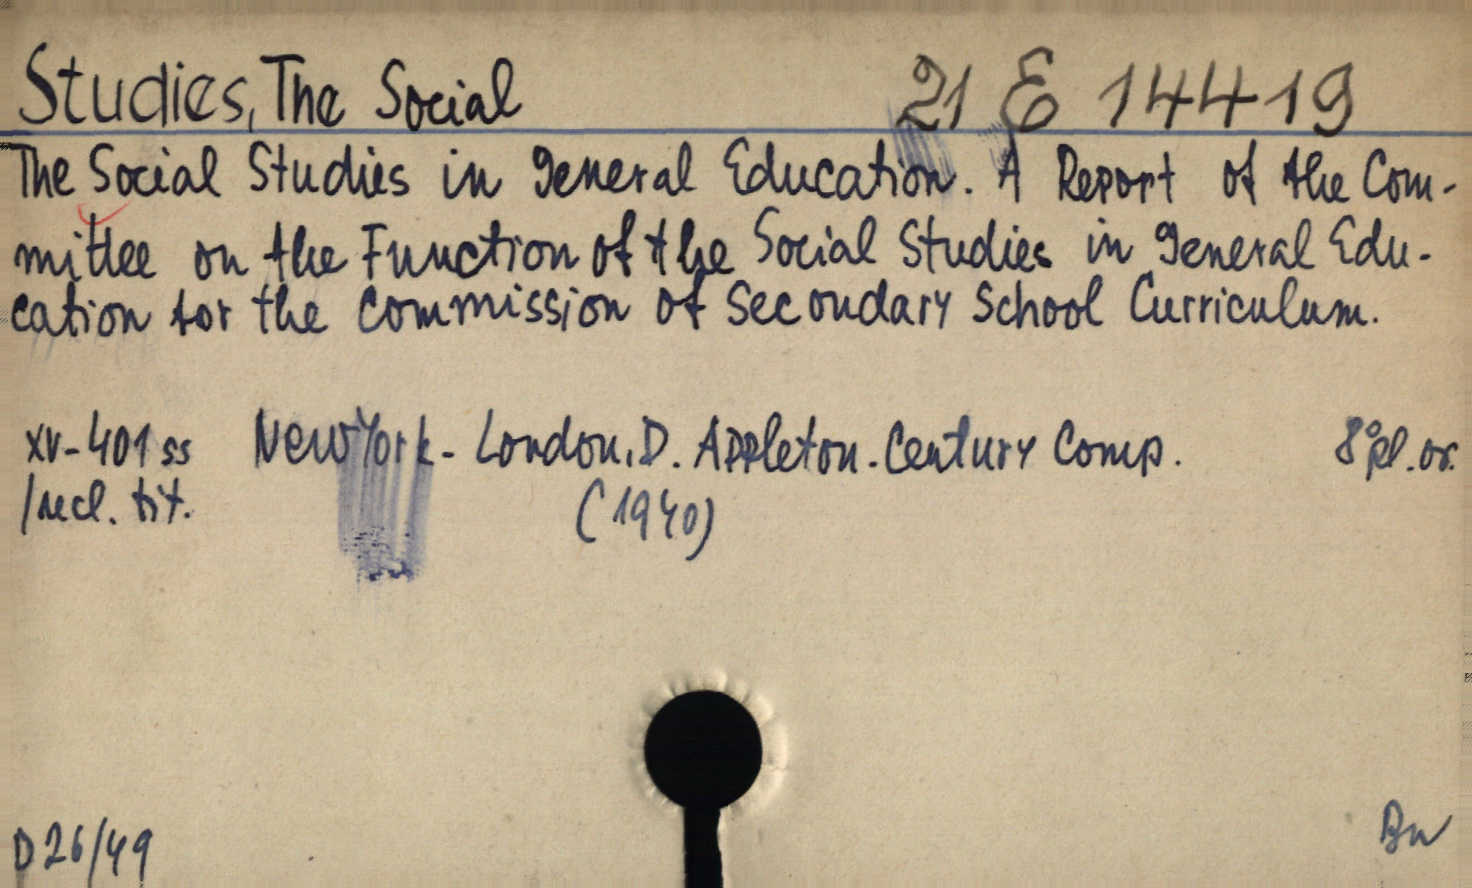 Studies, The Social 21 E 14419
The Social Studies in general Education. A Report of the Com-
mittee on the Function of the Social Studies in general Edu-
cation for the Commission of Secondary School Curriculum.
XV-401 ss New York - London, D. Appleton-Century Comp. 8° pl. or.
/incl. tit. (1940)
D 26/49